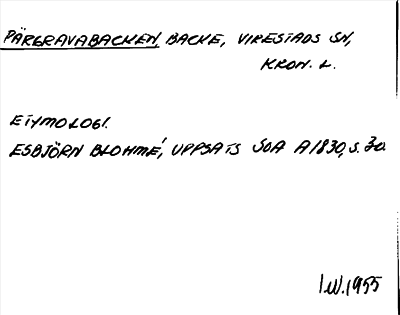 PÄRGRAVABACKEN, BACKE, VIRESTADS SN,
KRON. L.
ETYMOLOGI.
ESBJÖRN BLOHMÉ, UPPSATS SOA A1830, S. 30.
I.W. 1955